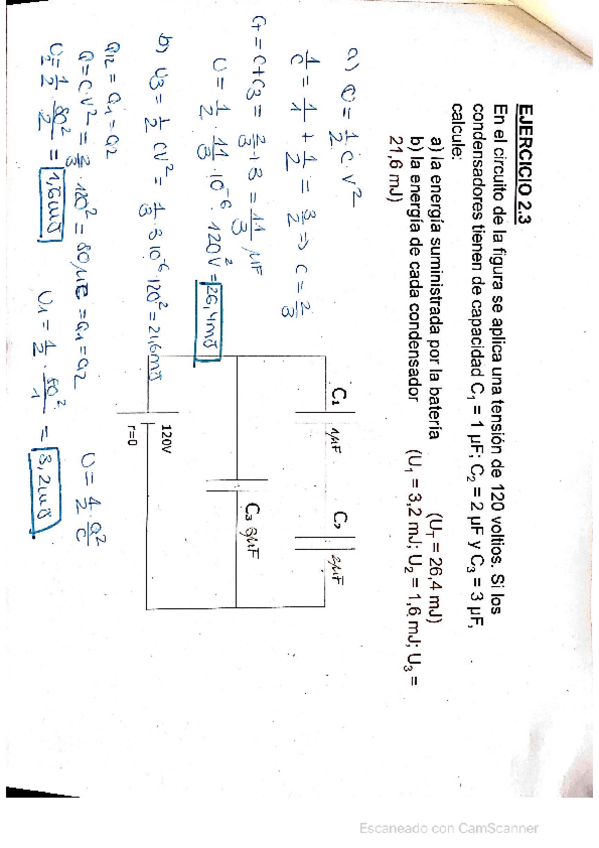 EJERCICIO 2.3
En el circuito de la figura se aplica una tensión de 120 voltios. Si los
condensadores tienen de capacidad C₁ = 1 µF; C₂ = 2 µF y C₃ = 3 µF,
calcule:
a) la energía suministrada por la batería (U_T = 26,4 mJ)
b) la energía de cada condensador (U₁ = 3,2 mJ; U₂ = 1,6 mJ; U₃ =
21,6 mJ)
C₁
1µF
C₂
2µF
C₃ 3µF
120V
r=0
a) U = 1/2 C · V²
1/C = 1/1 + 1/2 = 3/2 => C = 2/3
C_T = C + C₃ = 2/3 + 3 = 11/3 µF
U = 1/2 · 11/3 · 10⁻⁶ · 120²V = 26,4mJ
b) U₃ = 1/2 CV² = 1/3 3·10⁻⁶·120² = 21,6mJ
Q₁₂ = Q₁ = Q₂
Q = C·V² = 2/3 · 120² = 80µC = Q₁ = Q₂
U = 1/2 Q²/C
U₂ = 1/2 · 80²/2 = 1,6mJ
U₁ = 1/2 · 80²/1 = 3,2mJ
Escaneado con CamScanner